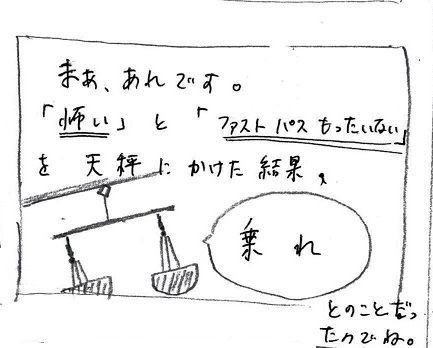 まあ、あれです。
「怖い」と「ファストパスもったいない」
を天秤にかけた結果、
乗れ
とのことだっ
たのでね。